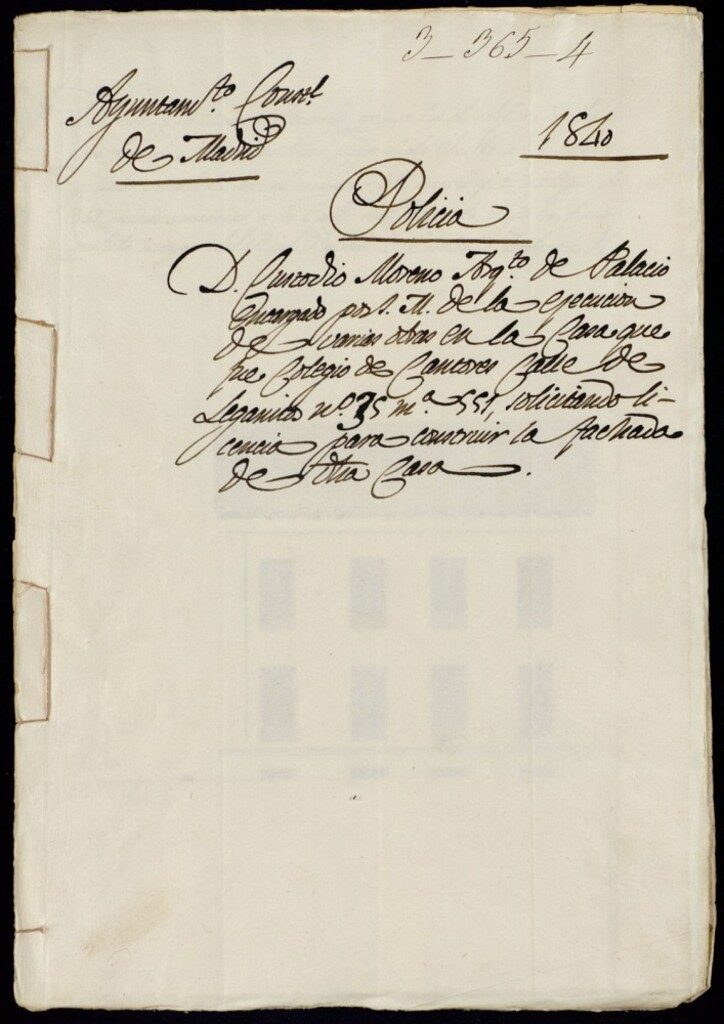 3-365-4
Ayuntam.to Const.l
de Madrid
1840
Policia
D. Custodio Moreno Arq.to de Palacio
encargado por S. M. de la ejecucion
de varias obras en la Casa que
fue Colegio de Cantores Calle de
Leganitos nº. 35 m.a 551, solicitando li-
cencia para construir la fachada
de dha Casa.